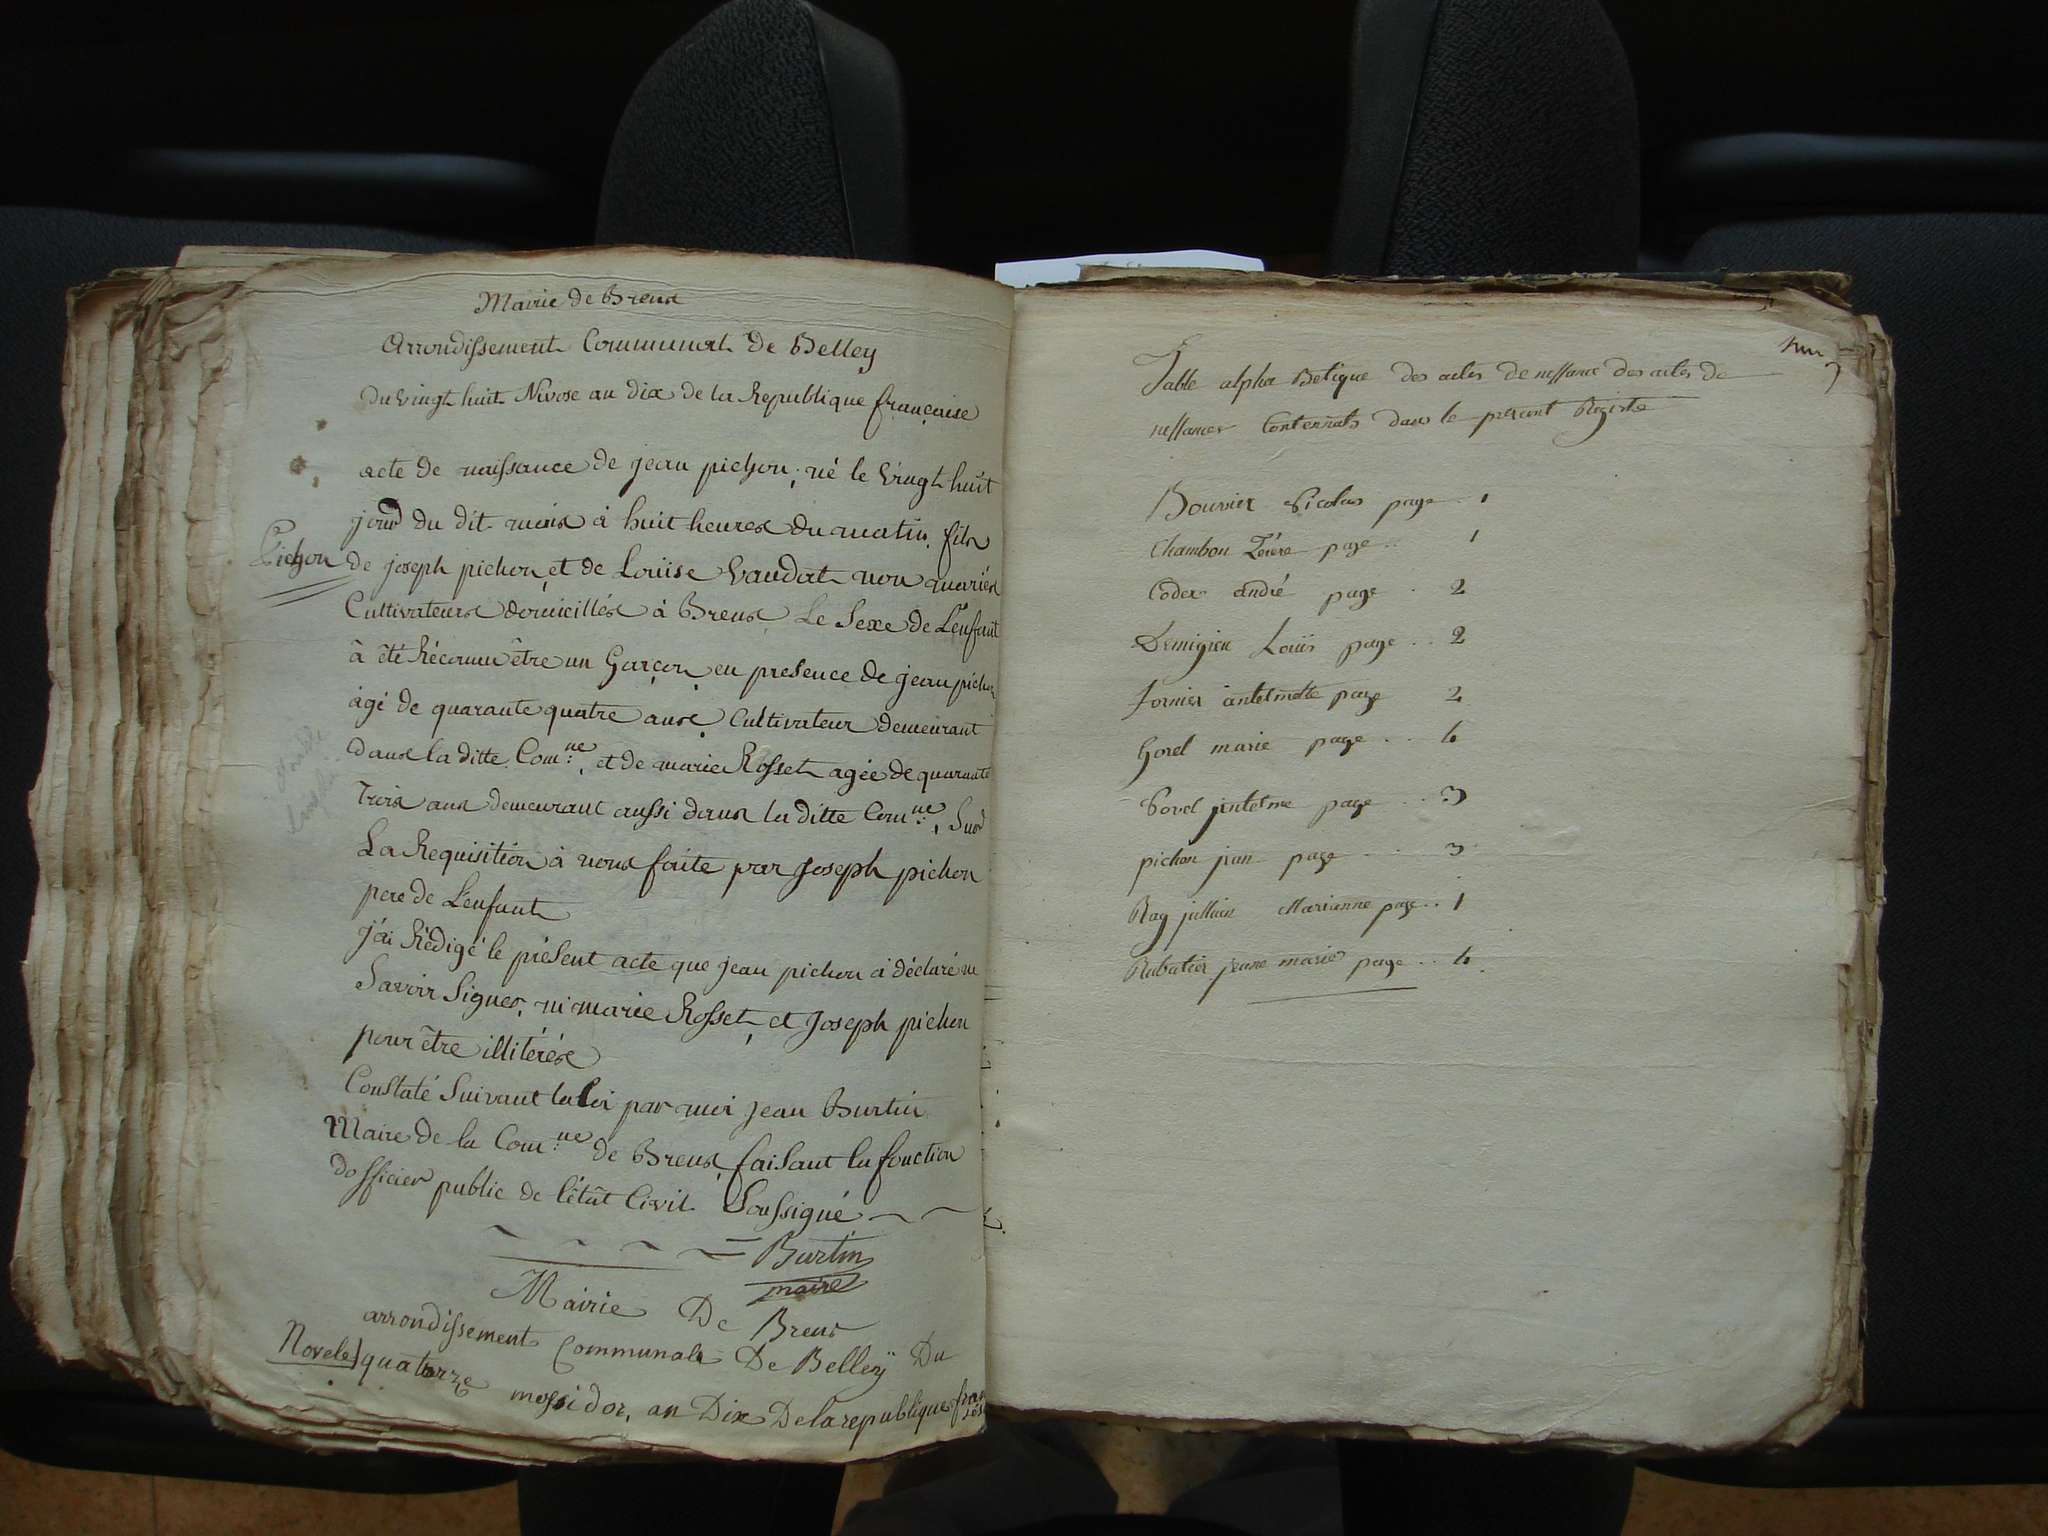 Mairie de Brens
Arrondissement Communal de Belley
Du vingt huit Nivose an dix de la Republique française
acte de naissance de jean pichon, né le vingt huit
jour du dit mois à huit heures du matin, fils
Pichon
de joseph pichon, et de Louise Vaudat non mariés
Cultivateurs domicillés à Brens Le Sexe de L'enfant
à été Réconnu être un Garçon, en presence de jean pichon
agé de quarante quatre ans, Cultivateur demeurant
dans la ditte Com:ne, et de marie Rosset agée de quarante
Trois ans demeurant aussi dans la ditte Com:ne, Sur
La Requisition à nous faite par Joseph pichon
pere de L'enfant
j'ai Rédigé le présent acte que jean pichon à déclaré ne
Savoir Signer, ni marie Rosset, et Joseph pichon
pour être illitérés
Constaté Suivant la Loi par moi jean Burtin
Maire de la Com:ne de Brens, faisant la fonction
dofficier public de l'état Civil Soussigné
Burtin
maire
Mairie De Brens
arrondissement Communale De Belleÿ Du
Novele
quatorze messidor, an Dix De la republique
Table alpha Betique des actes de nessance des actes de
nessances Contennats dans le present Registre
Bouvier Nicolas page 1
Chambon page 1
Coder andré page 2
Demigieu Louis page 2
fornier antelmette page 2
Gorel marie page 4
page 3
pichon jean page 3
Ray jullien Marianne page 1
Rubatier jeane marie page 4